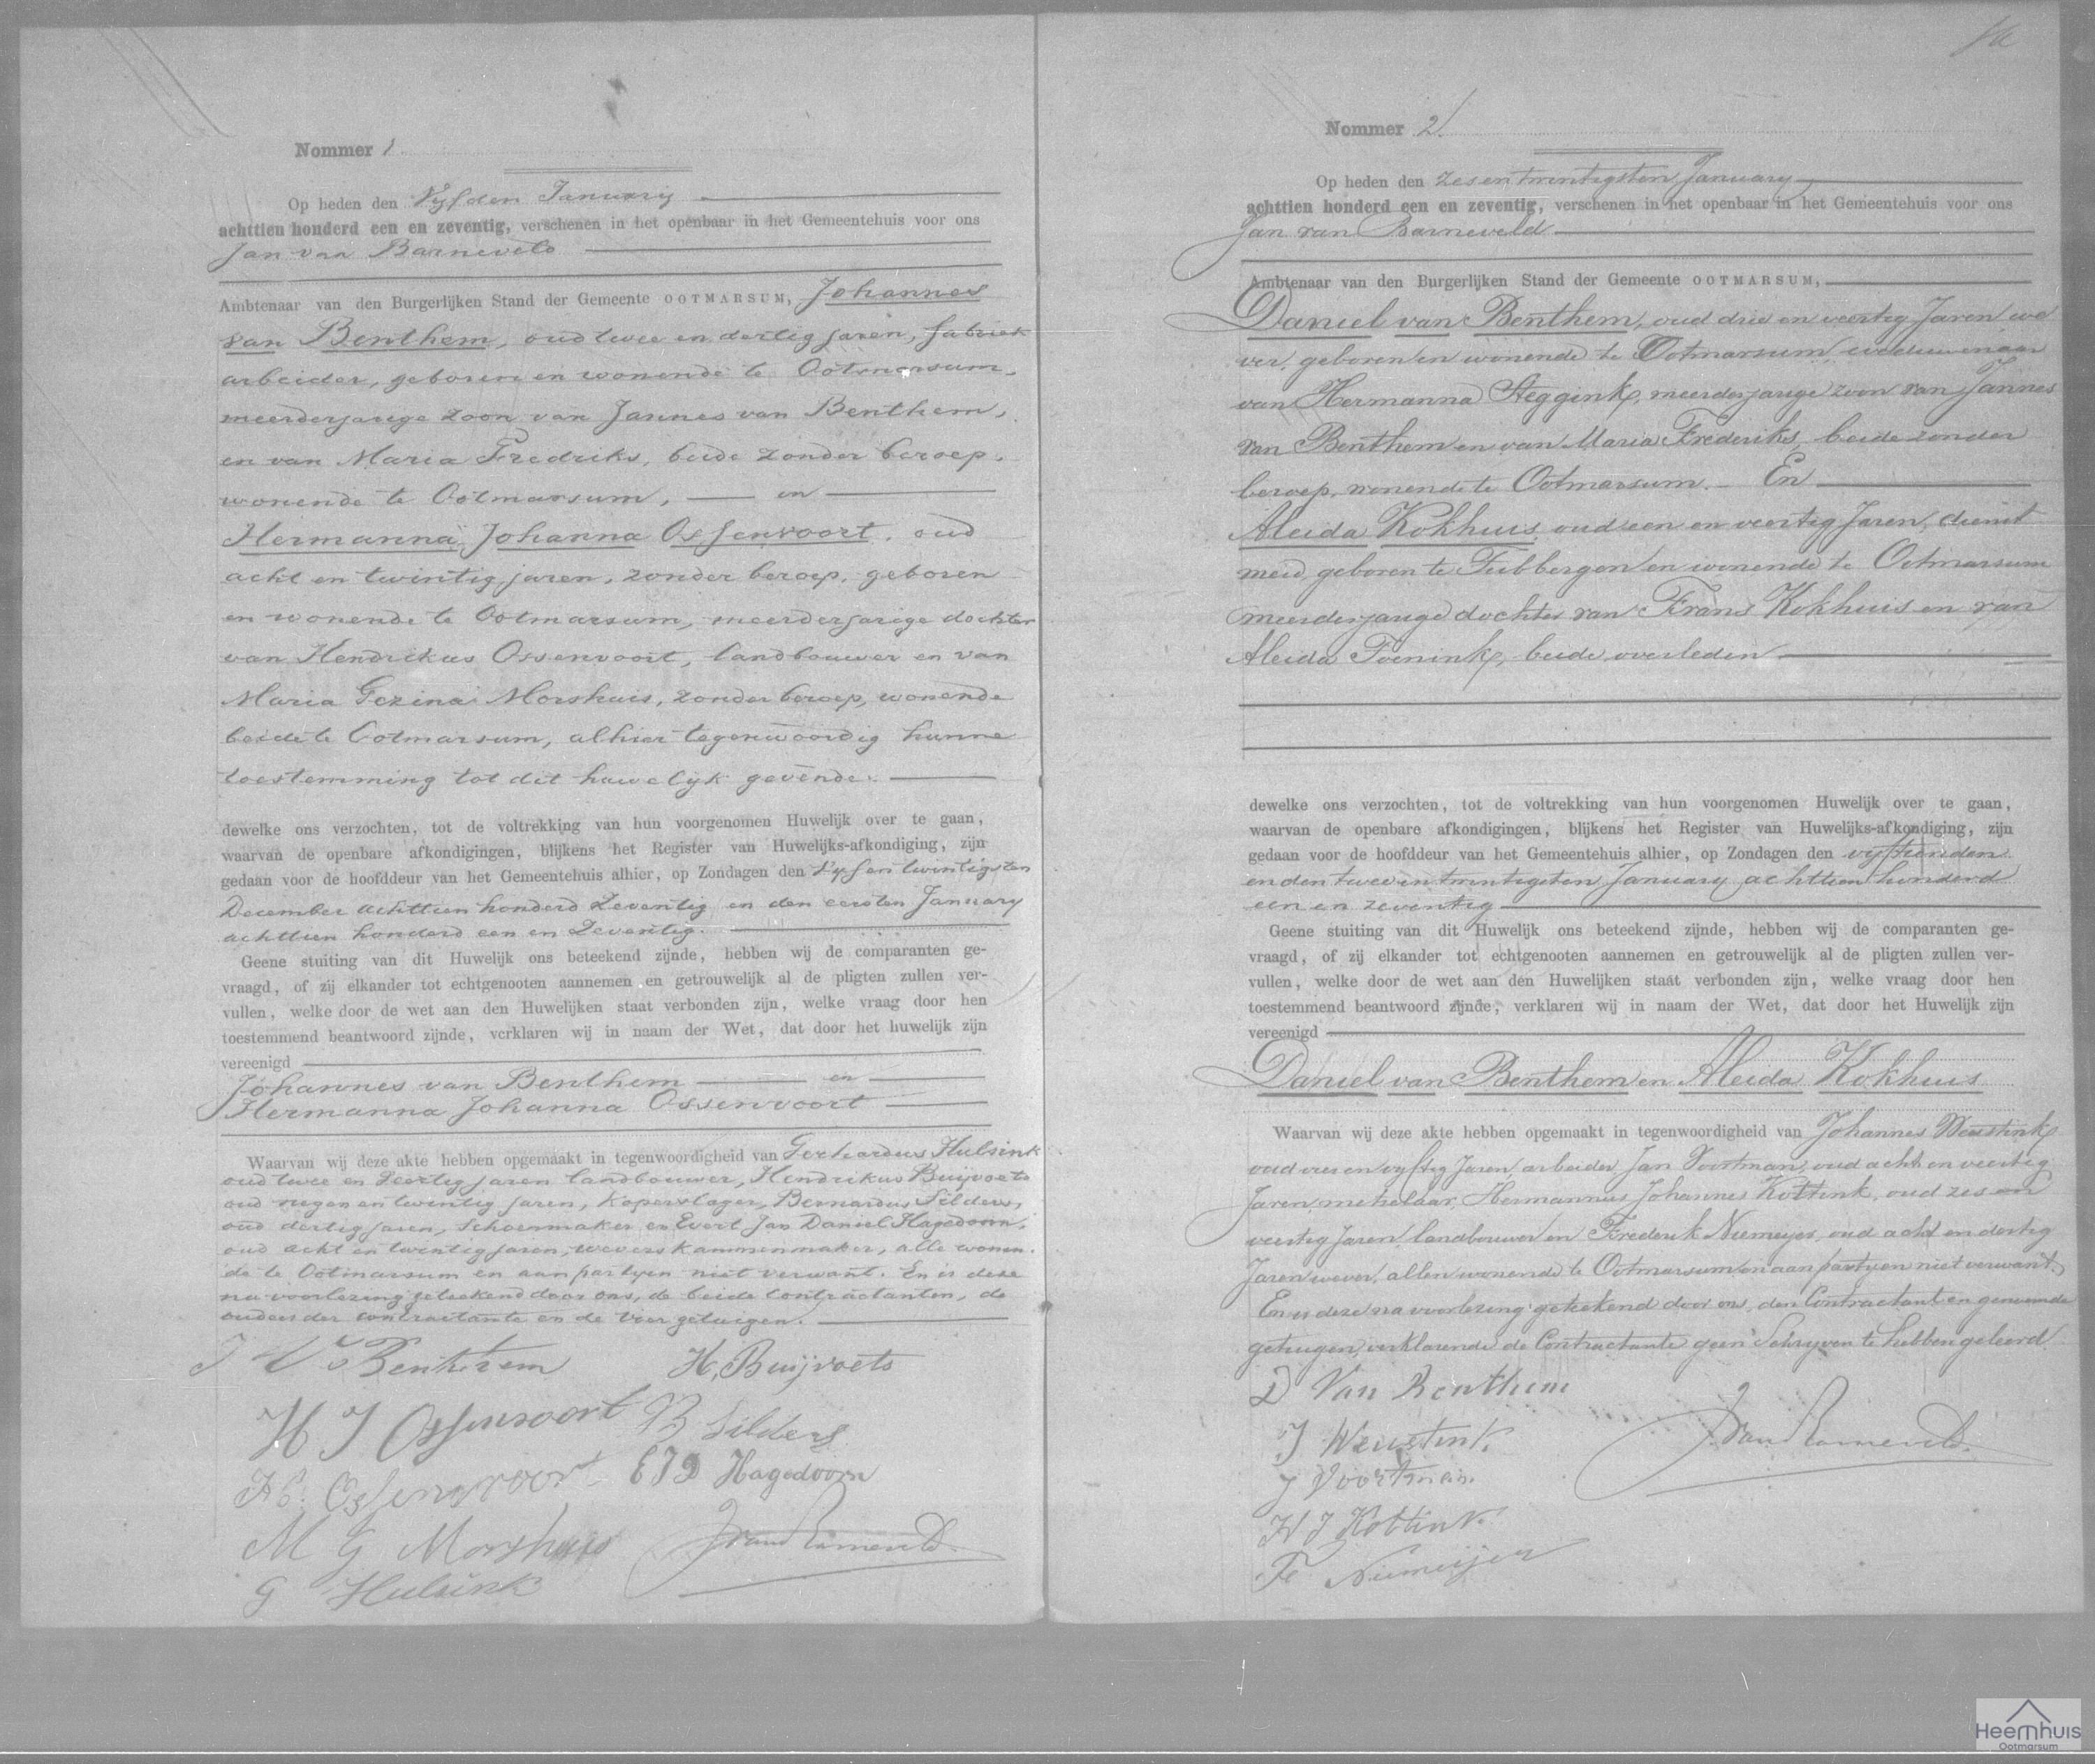 Nommer 1
Op heden den Vyfden January
achttien honderd een en zeventig, verschenen in het openbaar in het Gemeentehuis voor ons
Jan van Barneveld
Ambtenaar van den Burgerlijken Stand der Gemeente OOTMARSUM, Johannes
van Benthem, oud twee en dertig jaren, fabriek
arbeider, geboren en wonende te Ootmarsum,
meerderjarige zoon van Jannes van Benthem,
en van Maria Fredriks, beide zonder beroep,
wonende te Ootmarsum, en
Hermanna Johanna Ossenvoort, oud
acht en twintig jaren, zonder beroep, geboren
en wonende te Ootmarsum, meerderjarige dochter
van Hendrikus Ossenvoort, landbouwer en van
Maria Gezina Morshuis, zonder beroep, wonende
beide te Ootmarsum, alhier tegenwoordig hunne
toestemming tot dit huwelijk gevende.
dewelke ons verzochten, tot de voltrekking van hun voorgenomen Huwelijk over te gaan,
waarvan de openbare afkondigingen, blijkens het Register van Huwelijks-afkondiging, zijn
gedaan voor de hoofddeur van het Gemeentehuis alhier, op Zondagen den Vyf en twintigsten
December achttien honderd Zeventig en den eersten January
achttien honderd een en Zeventig.
Geene stuiting van dit Huwelijk ons beteekend zijnde, hebben wij de comparanten ge-
vraagd, of zij elkander tot echtgenooten aannemen en getrouwelijk al de pligten zullen ver-
vullen, welke door de wet aan den Huwelijken staat verbonden zijn, welke vraag door hen
toestemmend beantwoord zijnde, verklaren wij in naam der Wet, dat door het huwelijk zijn
vereenigd
Johannes van Benthem en
Hermanna Johanna Ossenvoort
Waarvan wij deze akte hebben opgemaakt in tegenwoordigheid van Gerhardus Hulsink
oud twee en veertig jaren landbouwer, Hendrikus Buijvoets
oud negen en twintig jaren, koperslager, Bernardus Silders,
oud dertig jaren, schoenmaker en Evert Jan Daniel Hagedoorn,
oud acht en twintig jaren, weverskammenmaker, alle wonen-
de te Ootmarsum en aan partyen niet verwant. En is deze
na voorlezing geteekend door ons, de beide contractanten, de
ouders der contractante en de vier getuigen.
J V Benthem
H, Buijvoets
H J Ossenvoort
B Silders
Ossenvoort
E J D Hagedoorn
M G Morshuis
J van Barneveld
G Hulsink
Nommer 2.
Op heden den zesentwintigsten January
achttien honderd een en zeventig, verschenen in het openbaar in het Gemeentehuis voor ons
Jan van Barneveld
Ambtenaar van den Burgerlijken Stand der Gemeente OOTMARSUM,
Daniel van Benthem, oud drie en veertig Jaren, we
ver, geboren en wonende te Ootmarsum, weduwenaar
van Hermanna Steggink, meerderjarige zoon van Jannes
van Benthem en van Maria Frederiks, beide zonder
beroep, wonende te Ootmarsum. En
Aleida Kokhuis, oud een en veertig Jaren, dienst
meid, geboren te Tubbergen en wonende te Ootmarsum
meerderjarige dochter van Frans Kokhuis en van
Aleida Toenink, beide overleden
dewelke ons verzochten, tot de voltrekking van hun voorgenomen Huwelijk over te gaan,
waarvan de openbare afkondigingen, blijkens het Register van Huwelijks-afkondiging, zijn
gedaan voor de hoofddeur van het Gemeentehuis alhier, op Zondagen den vyftienden
en den twee en twintigsten January achttien honderd
een en zeventig
Geene stuiting van dit Huwelijk ons beteekend zijnde, hebben wij de comparanten ge-
vraagd, of zij elkander tot echtgenooten aannemen en getrouwelijk al de pligten zullen ver-
vullen, welke door de wet aan den Huwelijken staat verbonden zijn, welke vraag door hen
toestemmend beantwoord zijnde, verklaren wij in naam der Wet, dat door het Huwelijk zijn
vereenigd
Daniel van Benthem en Aleida Kokhuis
Waarvan wij deze akte hebben opgemaakt in tegenwoordigheid van Johannes Weustink
oud vier en vyftig Jaren, arbeider, Jan Voortman, oud acht en veertig
Jaren, metselaar, Hermannus Johannes Kottink, oud zes en
veertig Jaren, landbouwer en Frederik Niemeyer, oud acht en dertig
Jaren wever, allen wonende te Ootmarsum en aan partyen niet verwant.
En is deze na voorlezing geteekend door ons, den Contractant en genoemde
getuigen, verklarende de Contractante geen Schryven te hebben geleerd.
D Van Benthem
J Weustink.
J van Barneveld.
J Voortman.
H J Kottink.
Fe Niemeijer
Heemhuis
Ootmarsum